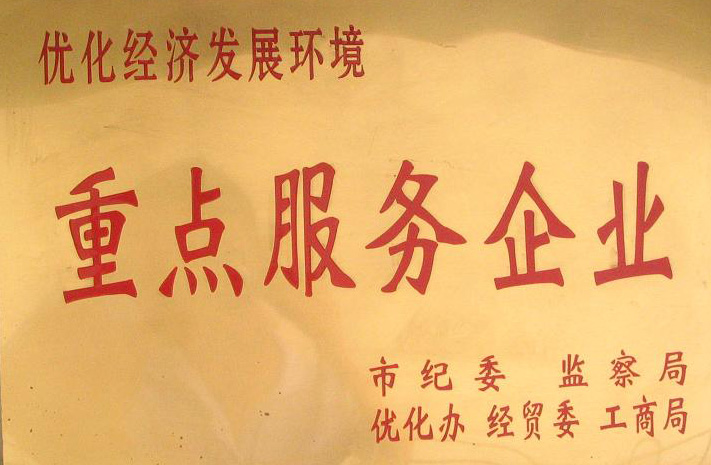 优化经济发展环境
重点服务企业
市纪委 监察局
优化办 经贸委 工商局